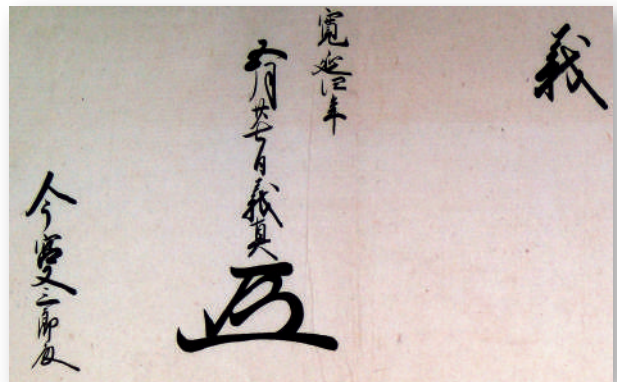 義
寛延四年
五月廿七日義真
今宮又三郎殿